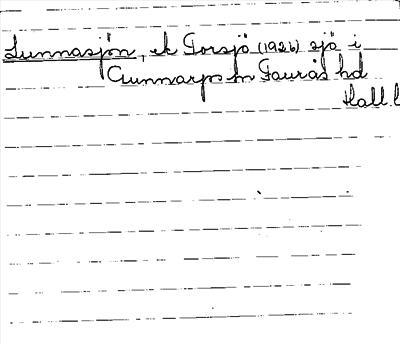 Sunnasjön, ek Torsjö (1926) sjö i
Gunnarps sn Faurås hd
Hall. l